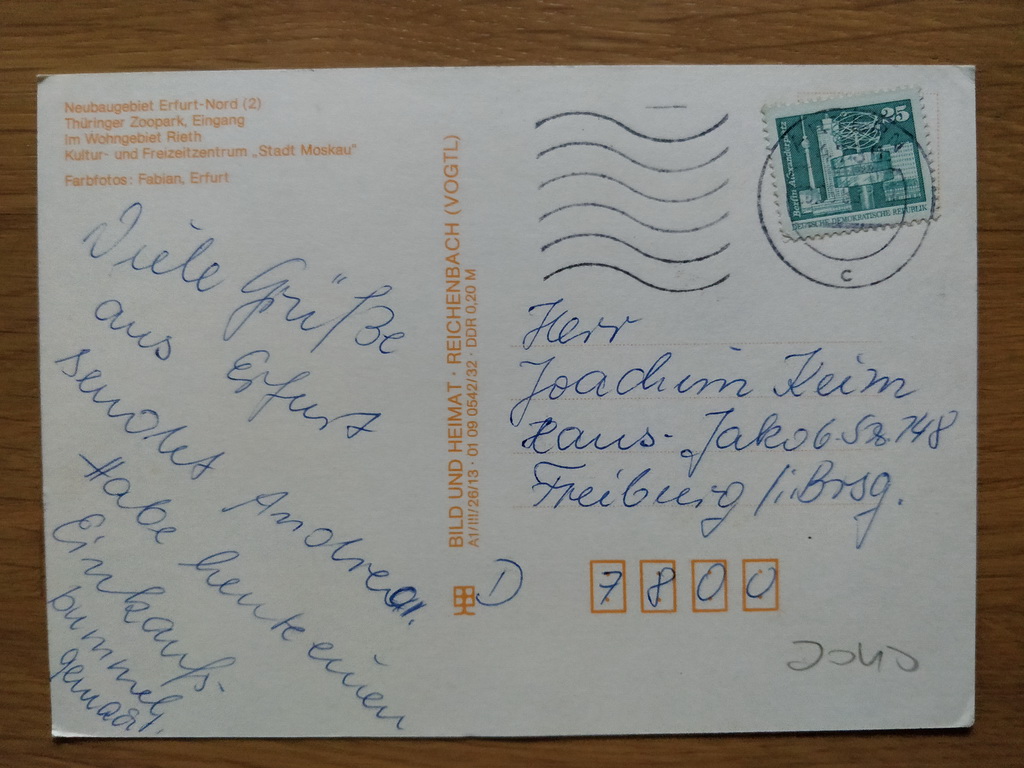 Neubaugebiet Erfurt-Nord (2)
Thüringer Zoopark, Eingang
Im Wohngebiet Rieth
Kultur- und Freizeitzentrum „Stadt Moskau"
Farbfotos: Fabian, Erfurt
Viele Grüße
aus Erfurt
sendet Andrea.
Habe heute einen
Einkaufs-
bummel
gemacht.
BILD UND HEIMAT · REICHENBACH (VOGTL)
A1/III/26/13 · 01 09 0542/32 · DDR 0,20 M
25
DEUTSCHE DEMOKRATISCHE REPUBLIK
c
Herr
Joachim Keim
Hans-Jakob-Str. 148
Freiburg /i. Brsg.
D 7800